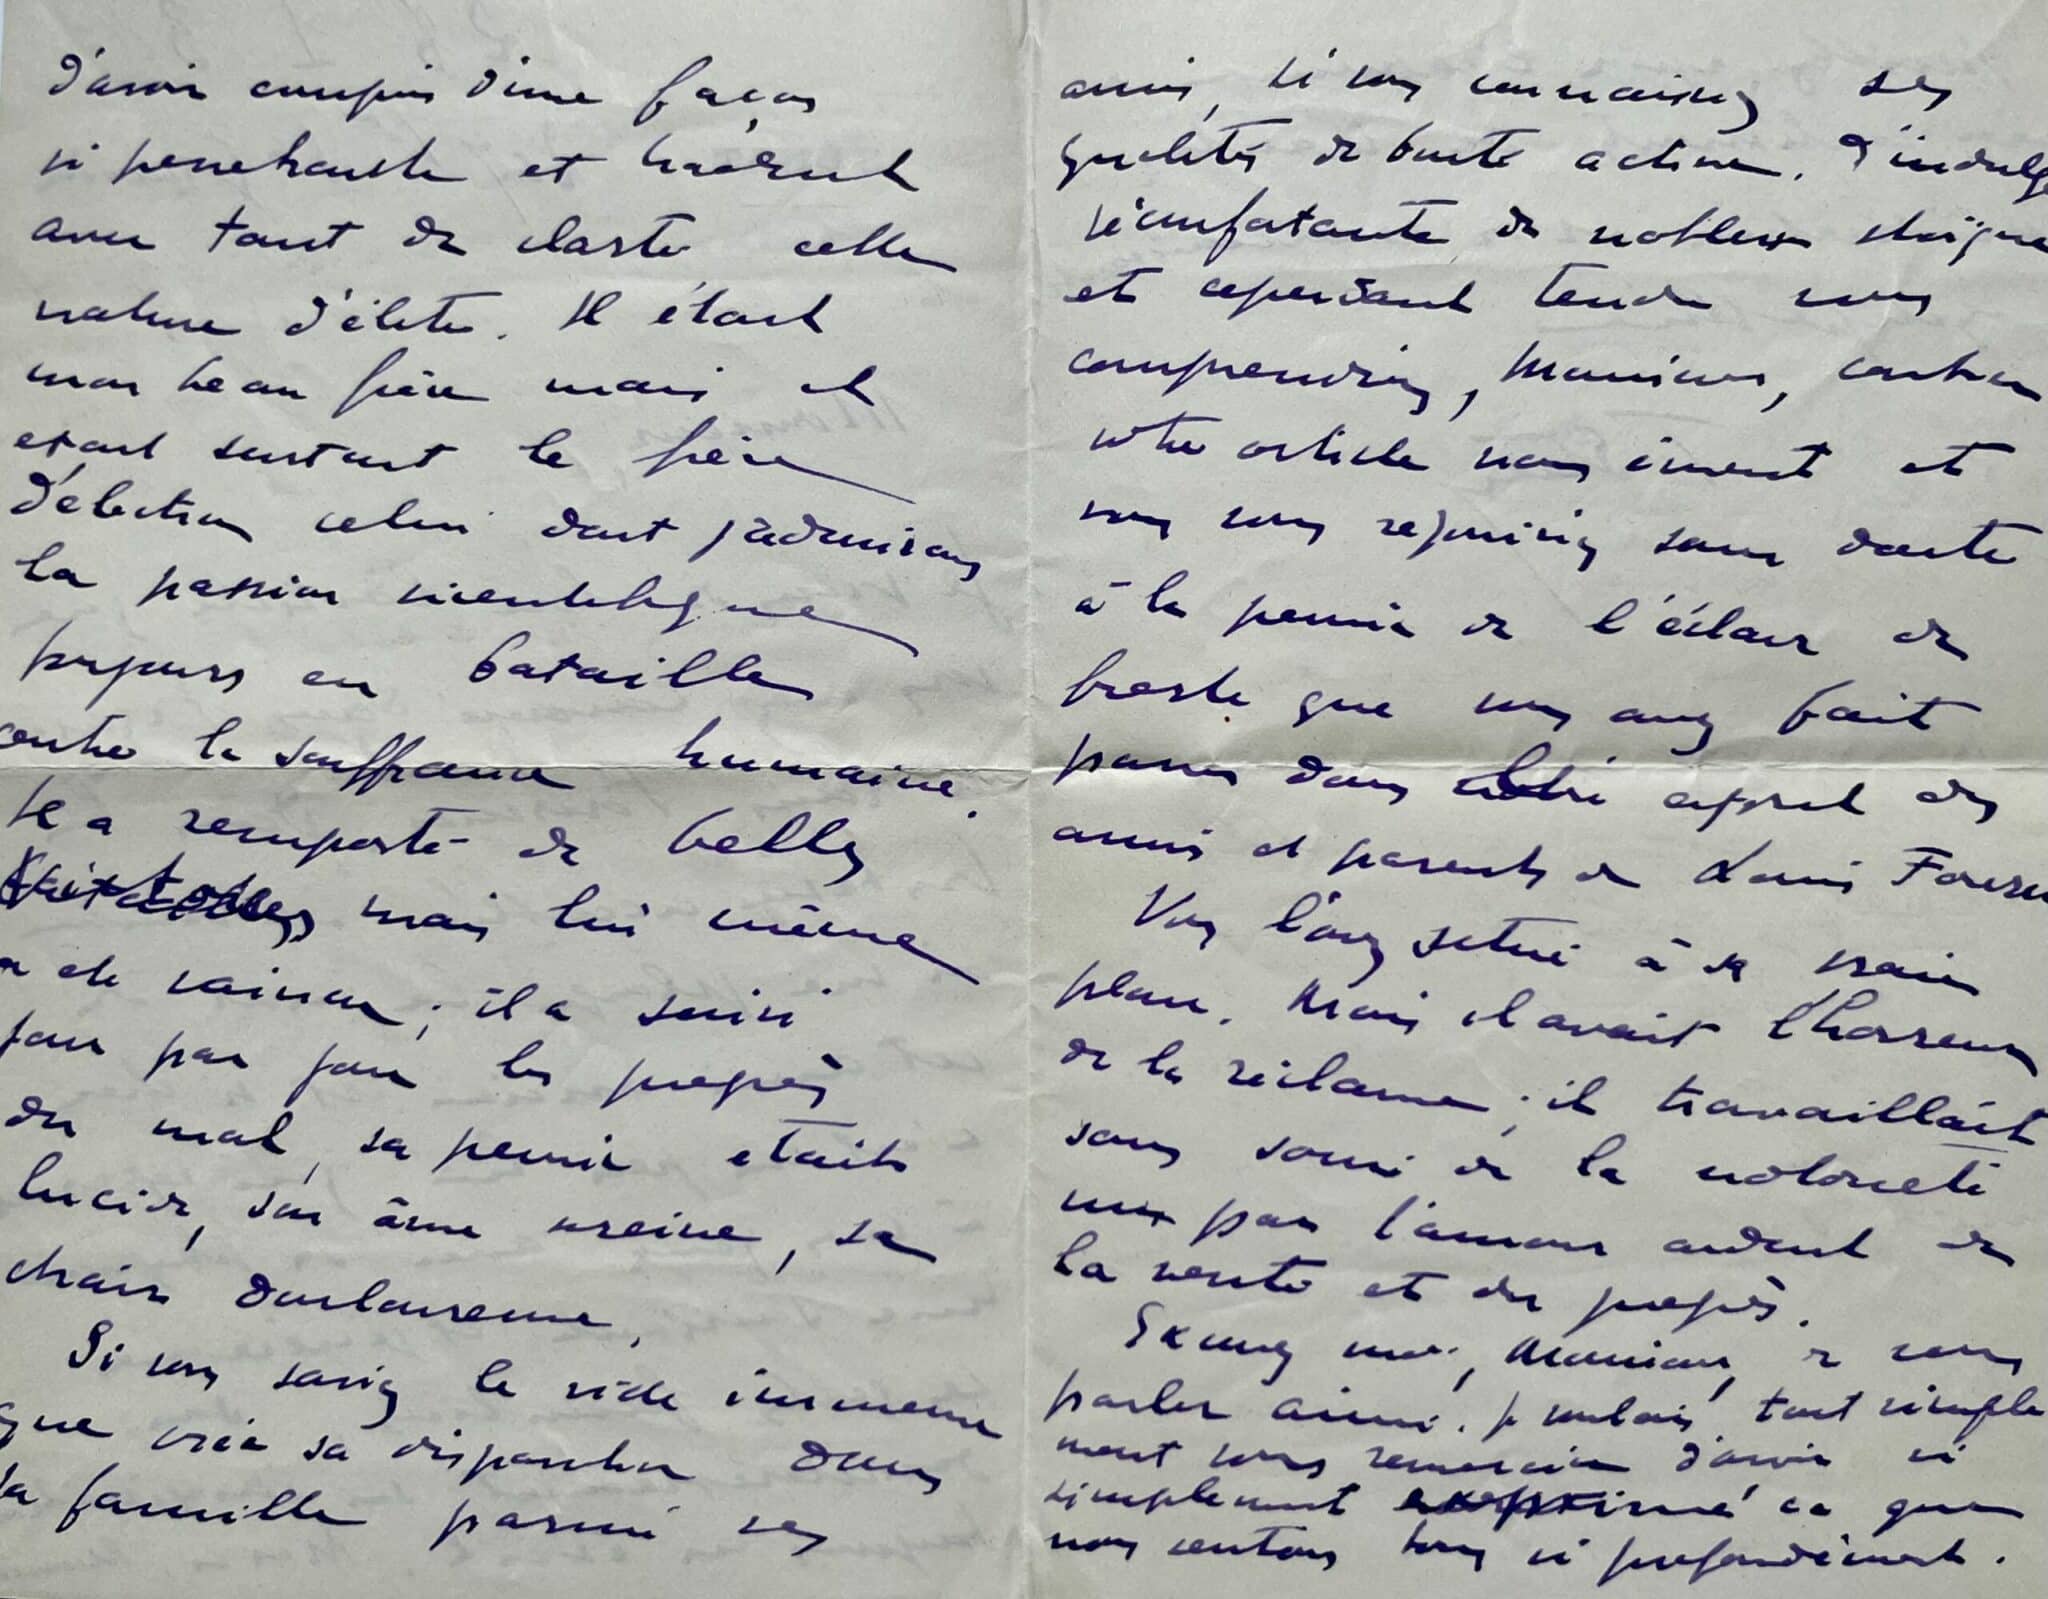 d'avoir compris d'une façon
si penetrante et traduit
avec tant de clarté cette
nature d'élite. Il était
mon beau frère mais il
etait surtout le frère
d'élection celui dont j'admirais
la passion scientifique
toujours en bataille
contre la souffrance humaine.
Il a remporté de belles
victoires mais lui même
a été vaincu ; il a suivi
jour par jour les progrès
du mal, sa pensée etait
lucide, son âme sereine, sa
chair douloureuse.
Si vous saviez le vide immense
que crée sa disparition dans
sa famille parmi ses
amis, si vous connaissiez ses
qualités de bonté active, d'indulge
réconfortante de noblesse stoïque
et cependant tendre vous
comprendriez, Monsieur, combien
votre article nous émeut et
vous vous rejouiriez sans doute
à la pensée de l'éclair de
fierté que vous avez fait
passer dans l'esprit des
amis et parents de Louis
Vous l'avez situé à sa vraie
place. Mais il avait l'horreur
de la réclame ; il travaillait
sans souci de la notorieté
mû par l'amour ardent de
la verité et du progrès.
Excusez moi, Monsieur, de vous
parler ainsi. Je voulais tout simple
ment vous remercier d'avoir si
simplement exprimé ce que
nous sentons tous si profondément.